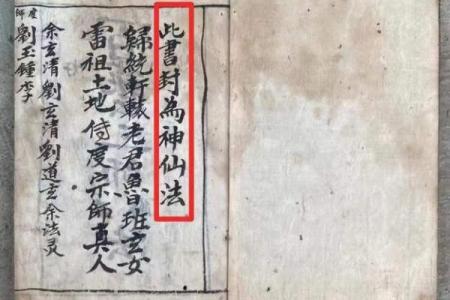 此書封為神仙法
歸統軒轅老君魯班玄女
雷祖土地侍度宗師真人
余玄清劉玄清劉道玄余法灵
度師劉玉鍾李